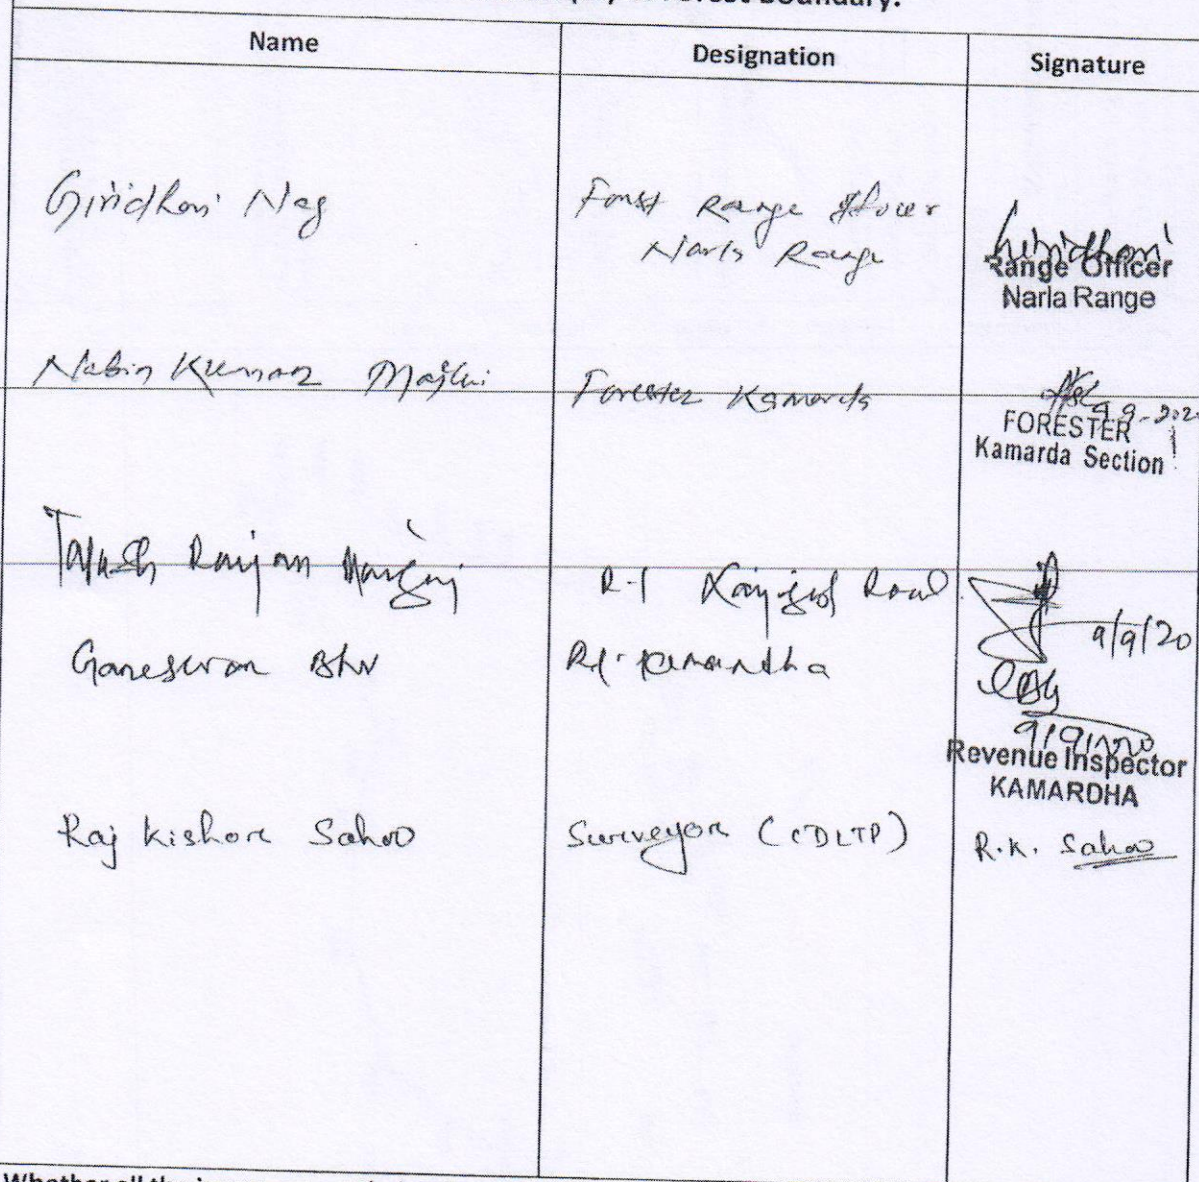 Forest Boundary.
Name Designation Signature
Giridhari Nag Forest Range Officer
Narla Range
Giridhari
Range Officer
Narla Range
Nabin Kumar Majhi Forester Kamarda
9-9-202
FORESTER
Kamarda Section
Ranjan R.I Road
9/9/20
Ganeswar R.I. Kamardha
9/9/2020
Revenue Inspector
KAMARDHA
Raj Kishore Sahoo Surveyor (CDLTP) R.K. Sahoo
Whether all the